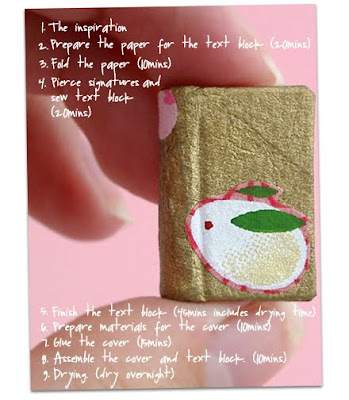 1. The inspiration
2. Prepare the paper for the text block (20mins)
3. Fold the paper (10mins)
4. Pierce signatures and
sew text block
(20mins)
5. Finish the text block (45mins includes drying time)
6. Prepare materials for the cover (10mins)
7. Glue the cover (15mins)
8. Assemble the cover and text block. (10mins)
9. Drying. (dry overnight)